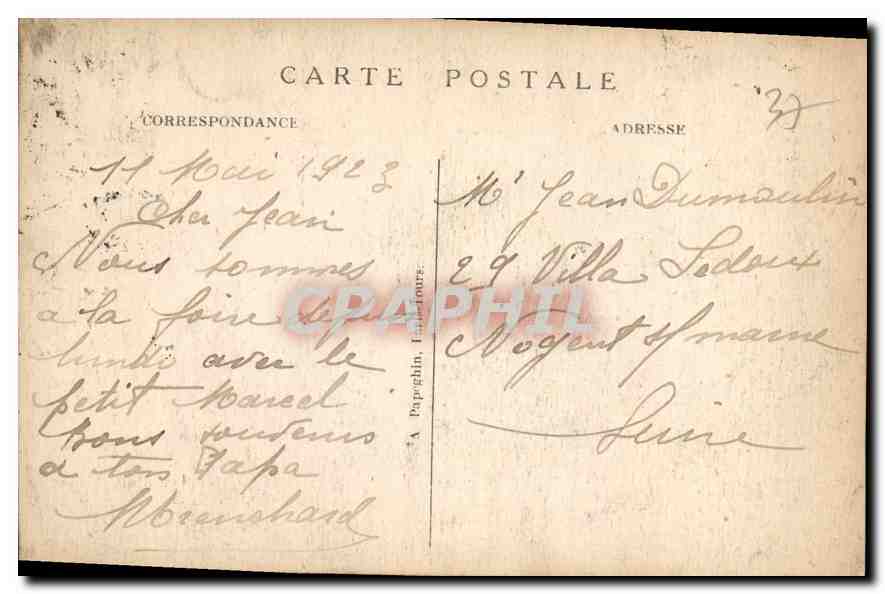 CARTE POSTALE
CORRESPONDANCE
ADRESSE
37
11 Mai 1923
Cher Jean
Nous sommes
a la foire
lundi avec le
petit Marcel
Bons
a ton Papa
A Papeghin, Tours.
Mr Jean Dumoulin
29 Villa Ledoux
Nogent s/ marne
Seine
CPAPHIL